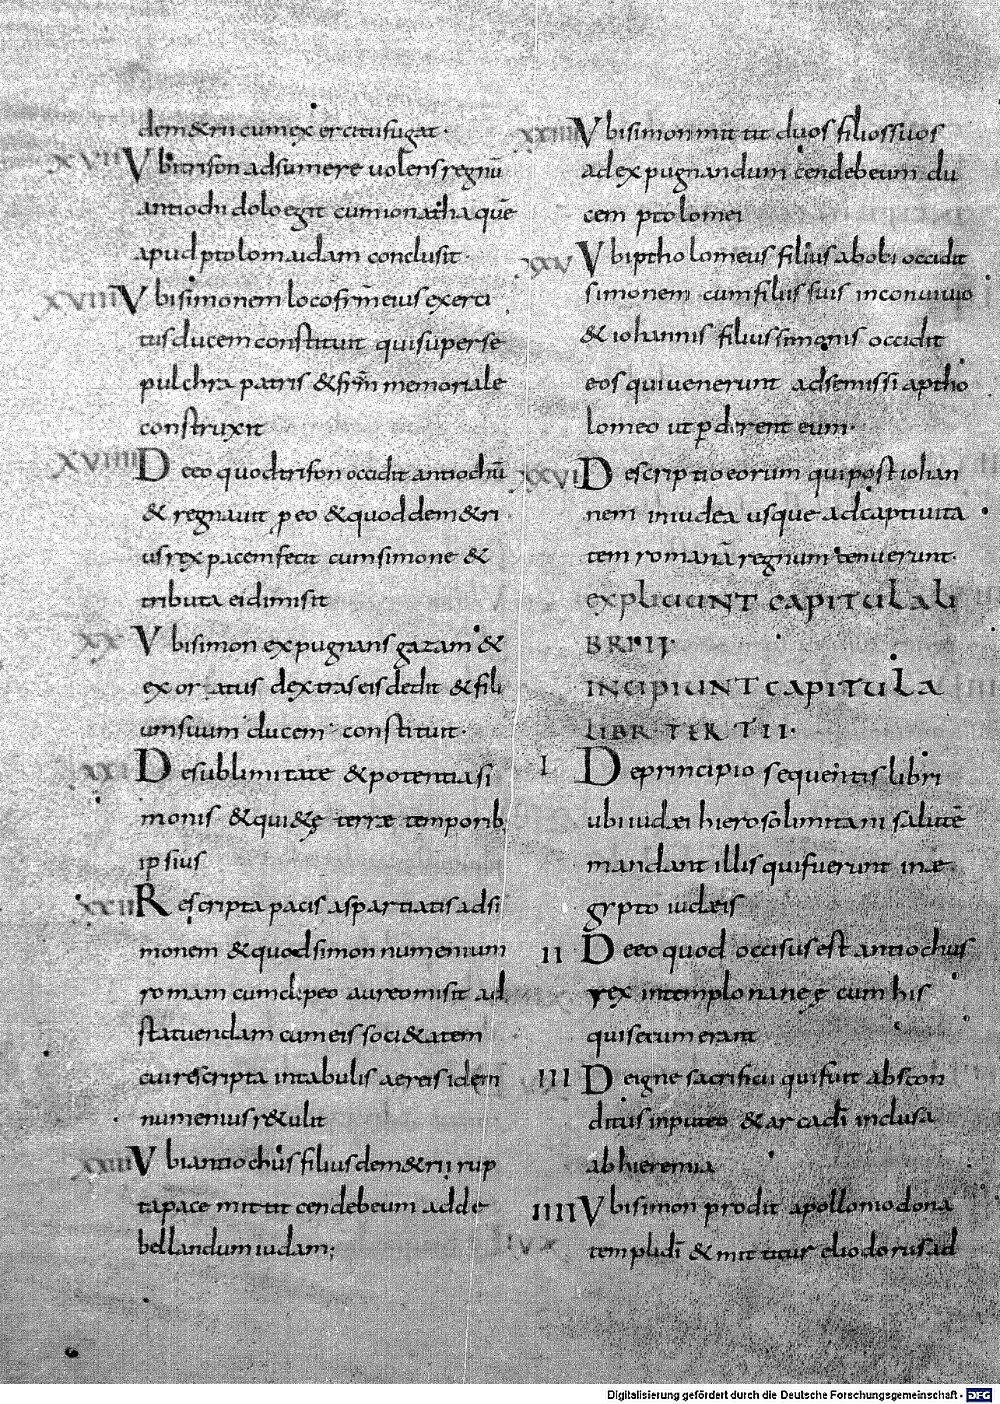 dem&rii cum exercitu fugat·
XVII Vbi trifon adsumere uolens regnū
antiochi dolo egit cum ionatha quē
apud ptolomaidam conclusit·
XVIII Vbi simonem loco frīs eius exerci
tus ducem constituit qui super se
pulchra patris & frīm memoriale
construxit
XVIIII De eo quod trifon occidit antiochū
& regnauit p eo & quod dem&ri
us rex pacem fecit cum simone &
tributa ei dimisit
XX Vbi simon expugnans gazam &
exoratus dextras eis dedit & fili
um suum ducem constituit·
XXI De sublimitate & potentia si
monis & qui&ę terræ temporib;
ipsius
XXII Rescripta pacis a spartiatis ad si
monem & quod simon numenium
romam cum clipeo aureo misit ad
statuendam cum eis soci&atem
cui rescripta in tabulis aereis idem
numenius r&ulit
XXIII Vbi antiochus filius dem&rii rup
ta pace mittit cendebeum adde
bellandum iudam;
XXIIII Vbi simon mittit duos filios suos
ad expugnandum cendebeum du
cem ptolomei
XXV Vbi ptholomeus filius abobi occidit
simonem cum filiis suis in conuiuio
& iohannis filius simonis occidit
eos qui uenerunt ad se missi a ptho
lomeo ut pderent eum·
XXVI Descriptio eorum qui post iohan
nem in iudea usque ad captiuita
tem romanā regnum tenuerunt·
EXPLICIUNT CAPITULA LI
BRI II·
INCIPIUNT CAPITULA
LIBRI TERTII·
I De principio sequentis libri
ubi iudæi hierosolimitani salutē
mandant illis qui fuerunt in æ
gypto iudæis
II De eo quod occisus est antiochus
rex in templo naneę cum his
qui secum erant
III De igne sacrificii qui fuit abscon
ditus in puteo & arca dī inclusa
ab hieremia
IIII Vbi simon prodit apollonio dona
templi dī & mittitur eliodorus ad
Digitalisierung gefördert durch die Deutsche Forschungsgemeinschaft - DFG